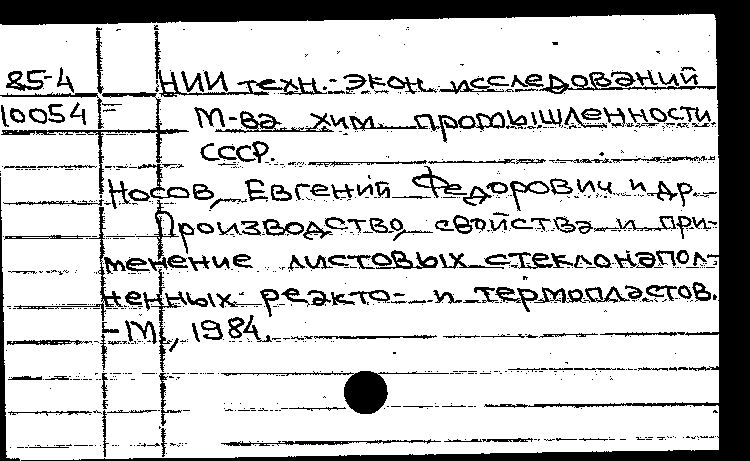 85-4 НИИ техн.-экон. исследований
10054 = М-ва хим. промышленности
СССР.
Носов, Евгений Федорович и др.
Производство, свойства и при-
менение листовых стеклонапол-
ненных реакто- и термопластов.
-М., 1984.